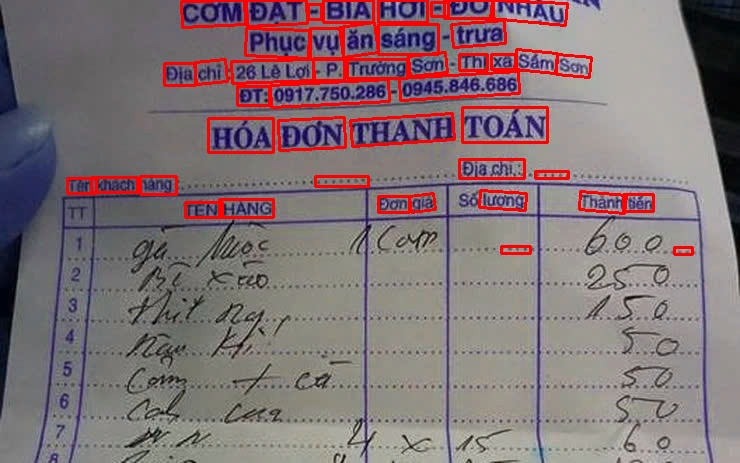 CƠM ĐẶT - BIA HƠI - ĐỒ NHẬU
Phục vụ ăn sáng - trưa
Địa chỉ: 26 Lê Lợi - P. Trường Sơn - Thị xã Sầm Sơn
ĐT: 0917.750.286 - 0945.846.686
HÓA ĐƠN THANH TOÁN
Địa chỉ:
Tên khách hàng
TT TÊN HÀNG Đơn giá Số lượng Thành tiền
1 gà 600
2 Bò xào 250
3 thịt 150
4 50
5 Cơm + cà 50
6 Canh cua 50
7 4 x 15 60
8